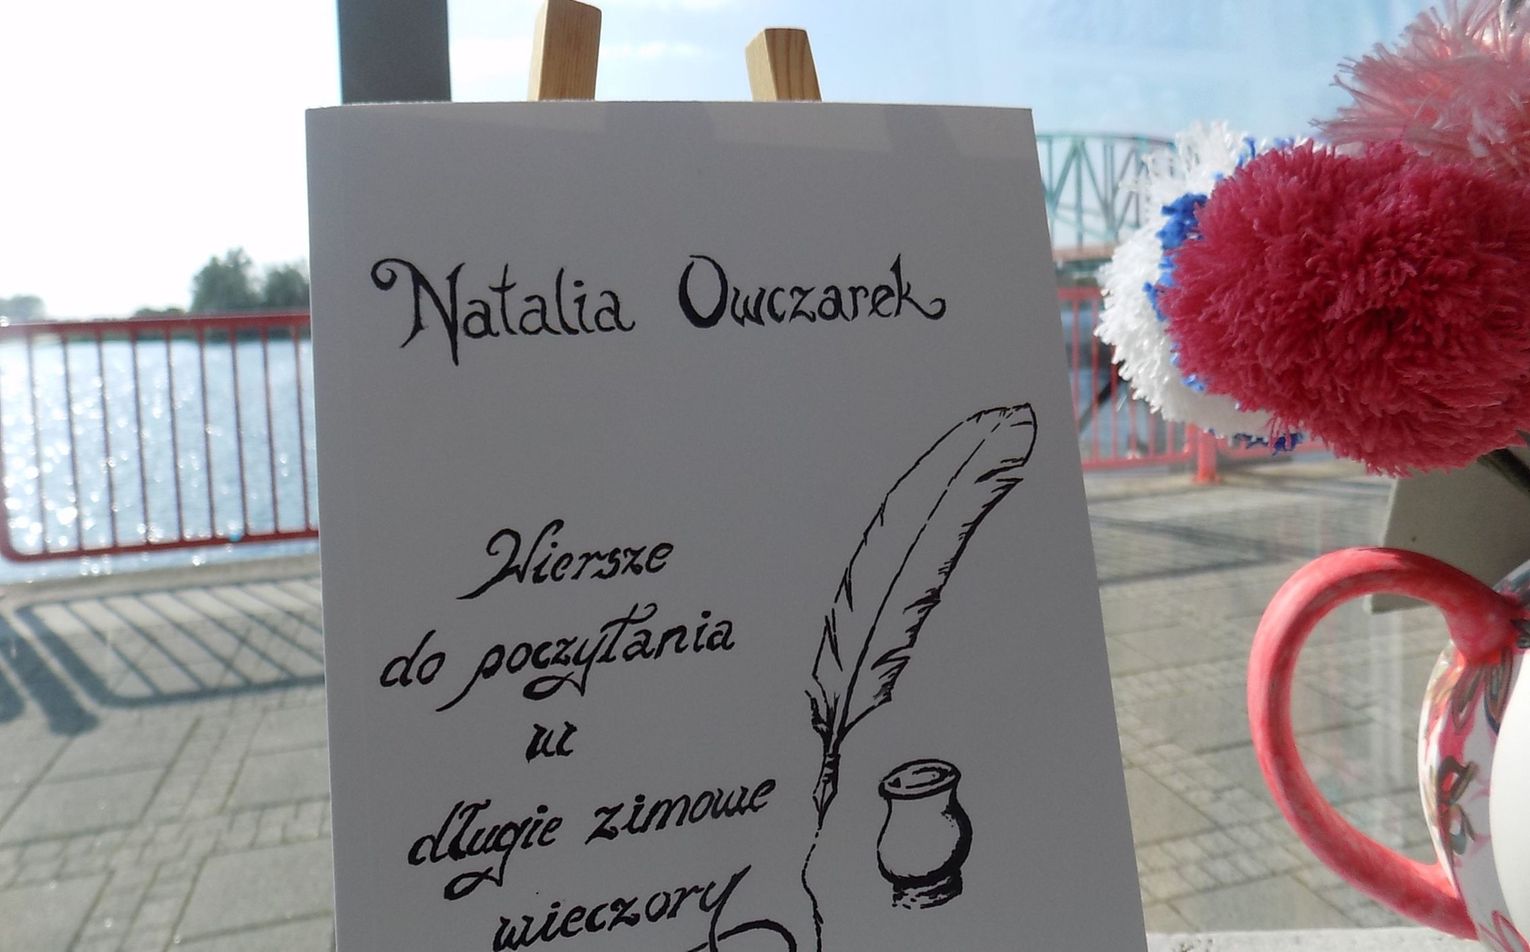 Natalia Owczarek
Wiersze
do poczytania
w
długie zimowe
wieczory